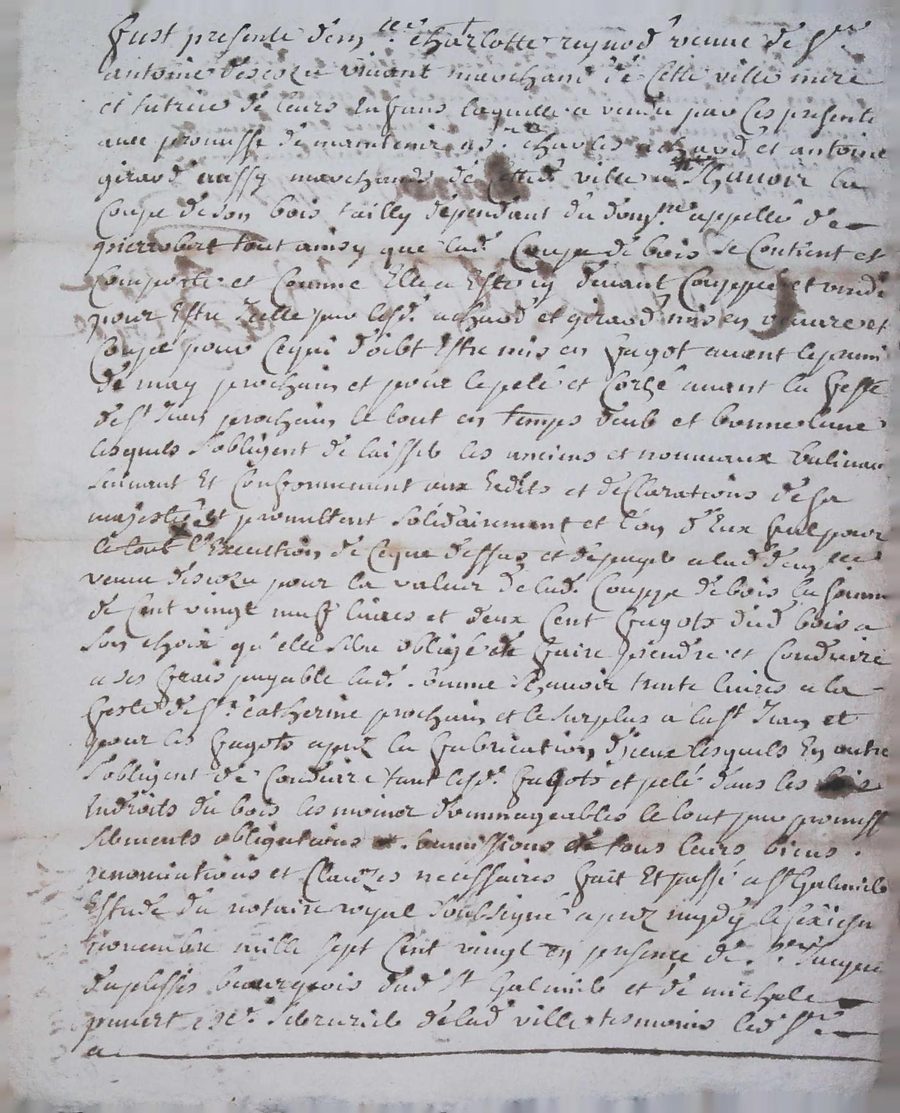 fust presente dem.lle charlotte reynod veuve de s.r
antoine descozu vivant marchand de cette ville mere
et tutrice de leurs enfans laquelle a vendu par ces presente
avec promesse de maintenir a s.rs charles achard et antoine
girard aussy marchands de lad.e ville a sçavoir la
Coupe de son bois tailly dependant du dom.ne appellé de
pierrobert tout ainsy que lad. Coupe de bois se Contient et
Comporte et Comme Elle a Esté cy devant Couppé et vendu
pour Estre icelle par lesd. achard et girard mis en et
Coupe pour Ce qui doibt Estre mis en fagot avant le premi
de may prochain et pour le pelé et Corsé avant la feste
de s.t Jean prochain le tout en temps deub et bonne lune
lesquels s'obligent de laisser les anciens et nouveaux balivau
suivant Et Conformement aux Edits et desclarations de sa
majesté et promettent solidairement et l'un d'Eux seul pour
le tout l'Execution de Ce que dessus et de payer a lad. dem.lle
veuve descozu pour la valeur de lad. Couppe de bois la somme
de Cent vingt neuf livres et deux Cent fagots dud. bois a
son choix qu'elle sera obligé de faire prendre et Conduire
a ses frais payable lad. somme sçavoir trente livres a la
feste de s.te catherine prochain et le surplus a la s.t Jean et
pour les fagots apres la fabrication d'iceux lesquels En outre
s'obligent de Conduire tant lesd. fagots et pelé dans les
Endroits du bois les moins dommageables le tout par promess
serments obligations soumissions de tous leurs biens
renonciations et Clauzes necessaires fait Et passé a s.t Galmier
Estude du notaire royal soubsigné apres midy le
novembre mille sept Cent vingt en presence de s.r Jacque
duplessis bourgeois dud. s.t Galmier et de michele
m.e serrurier de lad. ville tesmoins led. s.r
a